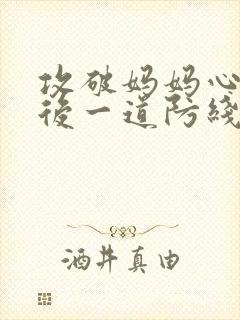 攻破妈妈心
後一道防綫
酒井真由